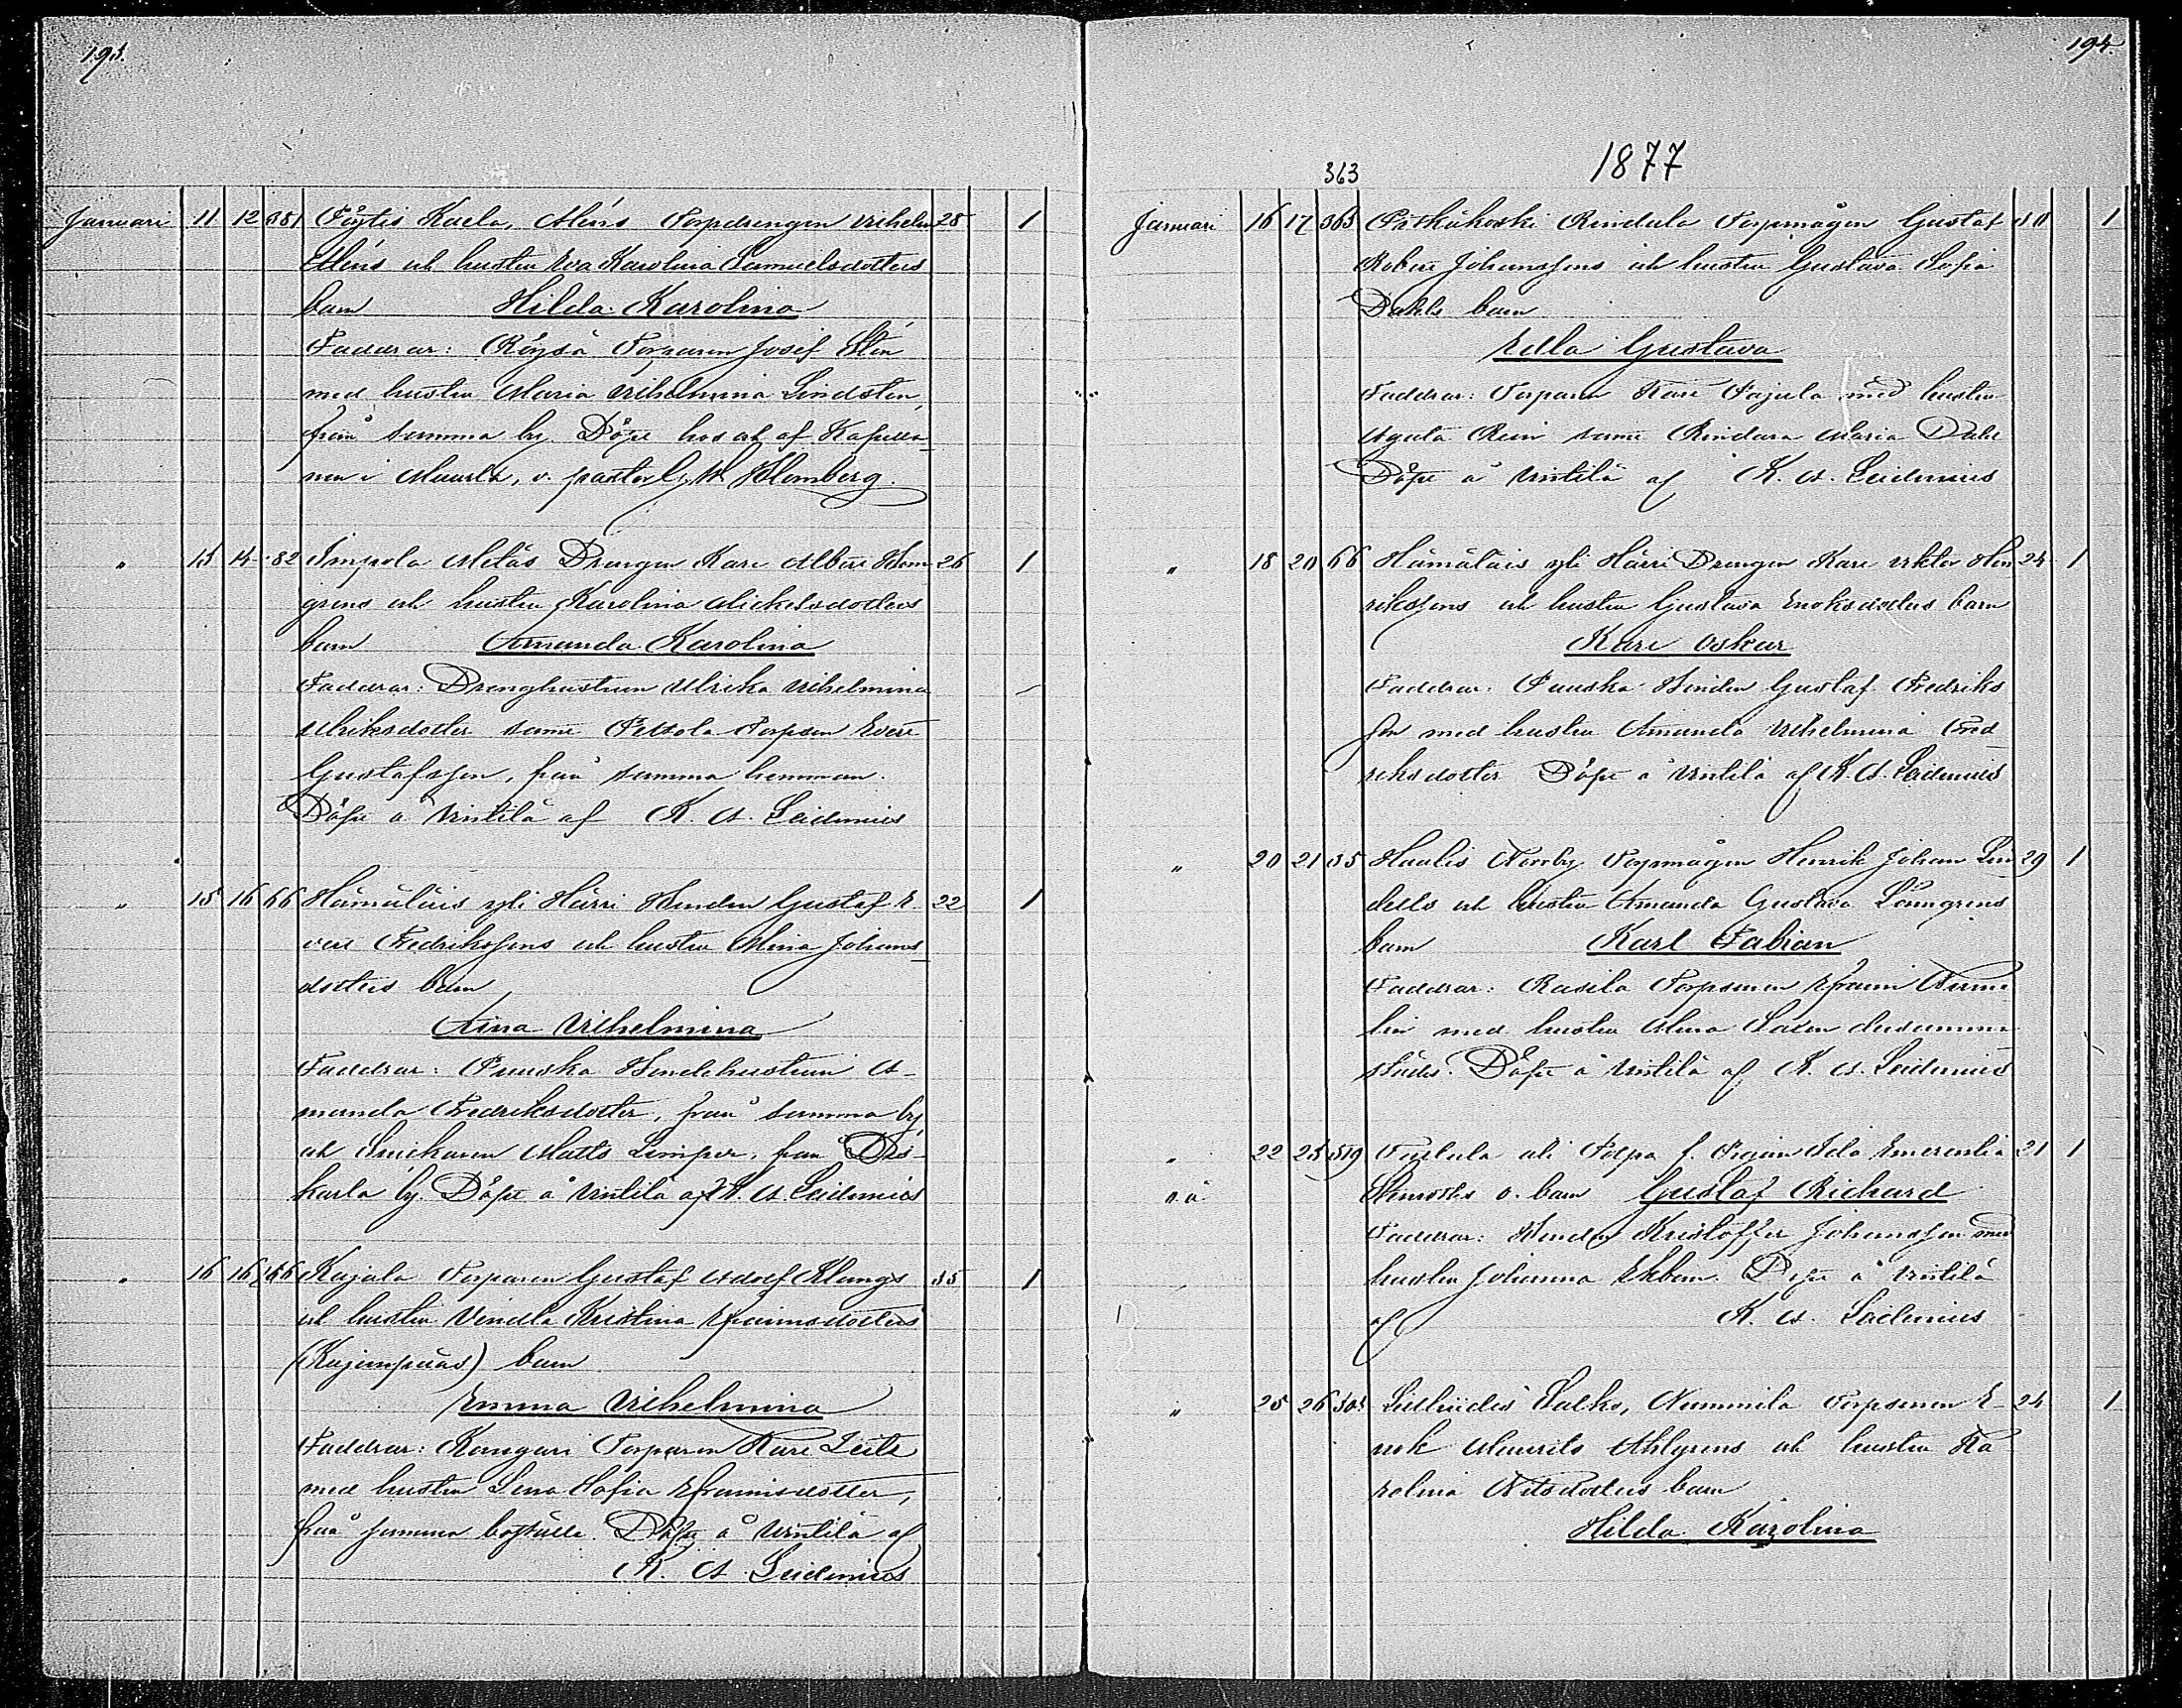 193.
Januari 11 12 381 Pöytis Kaela, Alléns Torpdrengen Vilhelm 28 1
Alléns och hustru Eva Karolina Samuelsdotters
barn Hilda Karolina
Faddrar: Röysä Torparen Josef Sten
med hustru Maria Vilhelmina Lindsten,
från samma by. Döpt hos och af Kapella-
nen i Muurla, v. pastor G. W. Holmberg.
" 13 14 82 Impola Drengen Karl Albert Holm- 26 1
grens och hustru Karolina Mickelsdotters
barn Amanda Karolina
Faddrar: Drenghustrun Ulrika Vilhelmina
Ulriksdotter samt Torpson Evert
Gustafsson, från samma hemman.
Döpt å Uintila af K. A. Leidenius
" 15 16 66 Hämäläis yli Härri Hinden Gustaf E- 22 1
vert Fredrikssons och hustru Mina Johans-
dotters barn
Aina Vilhelmina
Faddrar: Puuska Hindehustrun A-
manda Fredriksdotter, från samma by,
och Snickaren Matts Limper, från
karla by. Döpt å Uintila af K. A. Leidenius
" 16 16 Kajala Torparen Gustaf Adolf Klangs 35 1
och hustru Vendla Kristina Efraimsdotters
barn
Emma Vilhelmina
Faddrar: Kangari Torparen Karl
med hustru Lena Sofia Efraimsdotter,
från samma boställe. Döpt å Uintila af
K. A. Leidenius
194.
1877
363
Januari 16 17 363 Pitkäkoski Rindala Torpmågen Gustaf 30 1
Robert Johanssons och hustru Gustava Sofia
Dahls barn
Ella Gustava
Faddrar: Torparen Karl Pajula med hustru
Agata samt Maria Dahl
Döpt å Uintila af K. A. Leidenius
" 18 20 66 Hämäläis yli Härri Drengen Karl Viktor Hen- 24 1
rikssons och hustru Gustava Enoksdotters barn
Karl Oskar
Faddrar: Puuska Hinden Gustaf Fredriks-
son med hustru Amanda Vilhelmina Fred-
riksdotter Döpt å Uintila af K. A. Leidenius
" 20 21 35 Haalis Norrby Torpmågen Henrik Johan Lin- 29 1
dells och hustru Amanda Gustava Lönngrens
barn Karl Fabian
Faddrar: Rasila Torpsonen Efraim
med hustru Alina Saxen dersamma-
städes. Döpt å Uintila af K. A. Leidenius
" 22 23 319 ali f. Pigan Ida Emerentia 21 1
o.ä. Ekmarks o. barn Gustaf Richard
Faddrar: Hinden Kristoffer Johansson med
hustru Johanna Ekbom. Döpt å Uintila
af K. A. Leidenius
" 25 26 303 Salko, Nummila Torpsonen E- 24 1
nok Maurits Ahlgrens och hustru Ka-
rolina barn
Hilda Karolina